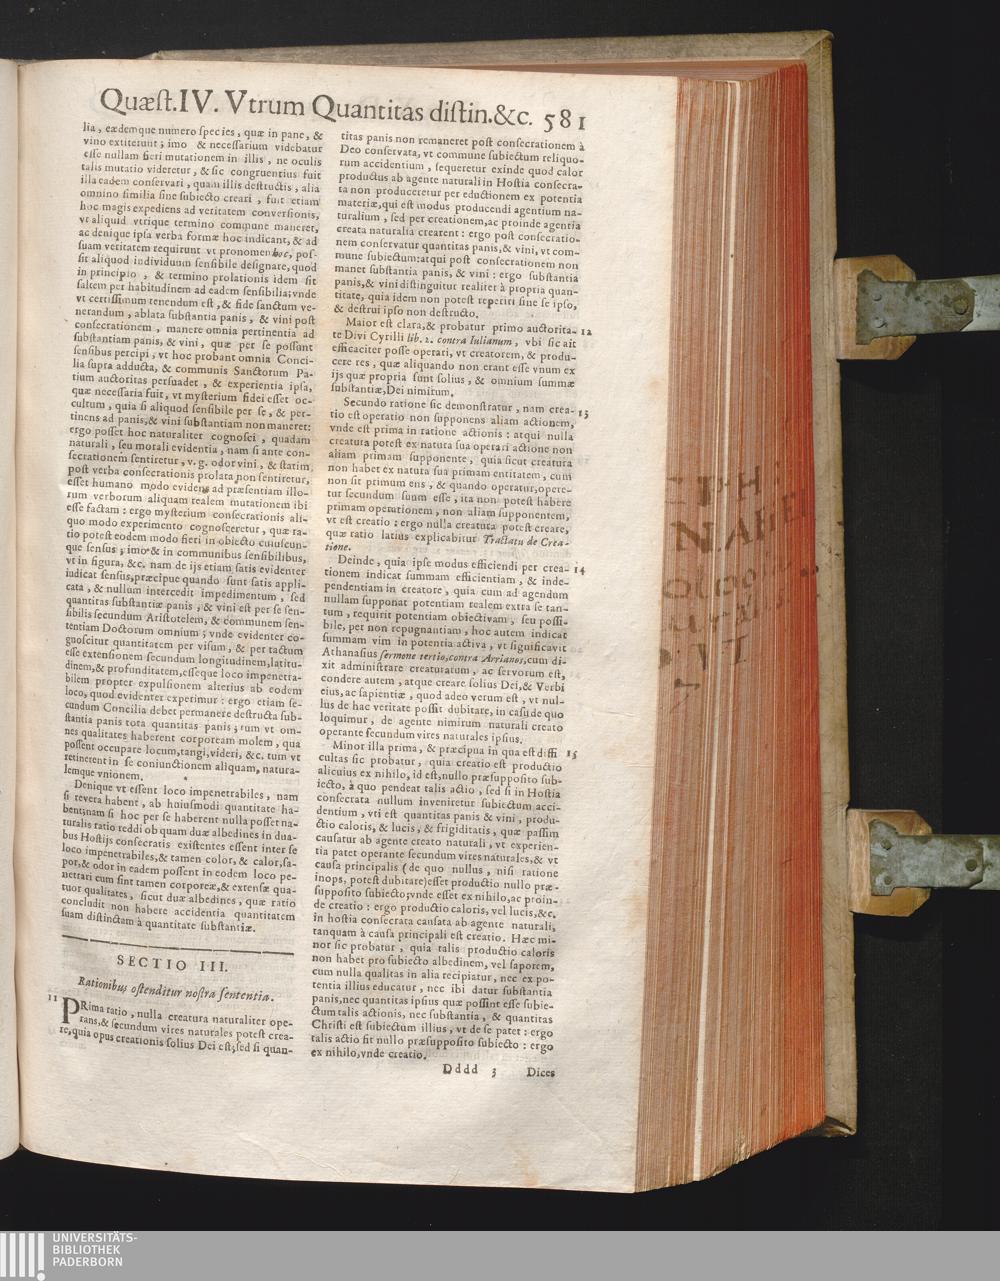 Quæſt.IV. Vtrum Quantitas diſtin.&c. 581
lia, eædemque numero ſpecies, quæ in pane, &
vino extiterunt; imo & neceſſarium videbatur
eſſe nullam fieri mutationem in illis, ne oculis
talis mutatio videretur, & ſic congruentius fuit
illa eadem conſervari, quam illis deſtructis, alia
omnino ſimilia ſine ſubiecto creari, fuit etiam
hoc magis expediens ad veritatem converſionis,
vt aliquid vtrique termino commune maneret,
ac denique ipſa verba formæ hoc indicant, & ad
ſuam veritatem requirunt vt pronomen hoc, poſ-
ſit aliquod individuum ſenſibile deſignare, quod
in principio, & termino prolationis idem ſit
ſaltem per habitudinem ad eadem ſenſibilia; vnde
vt certiſſimum tenendum eſt, & fide ſanctum ve-
nerandum, ablata ſubſtantia panis, & vini poſt
conſecrationem, manere omnia pertinentia ad
ſubſtantiam panis, & vini, quæ per ſe poſſunt
ſenſibus percipi, vt hoc probant omnia Conci-
lia ſupra adducta, & communis Sanctorum Pa-
trum auctoritas perſuadet, & experientia ipſa,
quæ neceſſaria fuit, vt myſterium fidei eſſet oc-
cultum, quia ſi aliquod ſenſibile per ſe, & per-
tinens ad panis,& vini ſubſtantiam non maneret:
ergo poſſet hoc naturaliter cognoſci, quadam
naturali, ſeu morali evidentia, nam ſi ante con-
ſecrationem ſentiretur, v. g. odor vini, & ſtatim
poſt verba conſecrationis prolata non ſentiretur,
eſſet humano modo evidens ad præſentiam illo-
rum verborum aliquam realem mutationem ibi
eſſe factam: ergo myſterium conſecrationis ali-
quo modo experimento cognoſceretur, quæ ra-
tio poteſt eodem modo fieri in obiecto cuiuſcun-
que ſenſus; imo & in communibus ſenſibilibus,
vt in figura, &c. nam de ijs etiam ſatis evidenter
iudicat ſenſus,præcipue quando ſunt ſatis appli-
cata, & nullum intercedit impedimentum, ſed
quantitas ſubſtantiæ panis, & vini eſt per ſe ſen-
ſibilis ſecundum Ariſtotelem, & communem ſen-
tentiam Doctorum omnium; vnde evidenter co-
gnoſcitur quantitatem per viſum, & per tactum
eſſe extenſionem ſecundum longitudinem,latitu-
dinem,& profunditatem,eſſeque loco impenetra-
bilem propter expulſionem alterius ab eodem
loco, quod evidenter experimur: ergo etiam ſe-
cundum Concilia debet permanere deſtructa ſub-
ſtantia panis tota quantitas panis; tum vt om-
nes qualitates haberent corpoream molem, qua
poſſent occupare locum,tangi,videri, &c. tum vt
retinerent in ſe coniunctionem aliquam, natura-
lemque vnionem.
Denique vt eſſent loco impenetrabiles, nam
ſi revera habent, ab huiuſmodi quantitate ha-
bent;nam ſi hoc per ſe haberent nulla poſſet na-
turalis ratio reddi ob quam duæ albedines in dua-
bus Hoſtijs conſecratis exiſtentes eſſent inter ſe
loco impenetrabiles,& tamen color, & calor,ſa-
por,& odor in eadem poſſent in eodem loco pe-
nettrari cum ſint tamen corporeæ,& extenſæ qua-
tuor qualitates, ſicut duæ albedines, quæ ratio
concludit non habere accidentia quantitatem
ſuam diſtinctam à quantitate ſubſtantiæ.
SECTIO III.
Rationibus oſtenditur noſtra ſententia.
11 PRima ratio, nulla creatura naturaliter ope-
rans,& ſecundum vires naturales poteſt crea-
re,quia opus creationis ſolius Dei eſt;ſed ſi quan-
titas panis non remaneret poſt conſecrationem à
Deo conſervata, vt commune ſubiectum reliquo-
rum accidentium, ſequeretur exinde quod calor
productus ab agente naturali in Hoſtia conſecra-
ta non produceretur per eductionem ex potentia
materiæ,qui eſt modus producendi agentium na-
turalium, ſed per creationem,ac proinde agentia
creata naturalia crearent: ergo poſt conſecratio-
nem conſervatur quantitas panis,& vini, vt com-
mune ſubiectum:atqui poſt conſecrationem non
manet ſubſtantia panis, & vini: ergo ſubſtantia
panis,& vini diſtinguitur realiter à propria quan-
titate, quia idem non poteſt reperiri ſine ſe ipſo,
& deſtrui ipſo non deſtructo.
Maior eſt clara,& probatur primo auctorita- 12
te Divi Cyrilli lib. 2. contra Iulianum, vbi ſic ait
efficaciter poſſe operari, vt creatorem, & produ-
cere res, quæ aliquando non erant eſſe vnum ex
ijs quæ propria ſunt ſolius, & omnium ſummæ
ſubſtantiæ,Dei nimirum.
Secundo ratione ſic demonſtratur, nam crea- 13
tio eſt operatio non ſupponens aliam actionem,
vnde eſt prima in ratione actionis: atqui nulla
creatura poteſt ex natura ſua operari actione non
aliam primam ſupponente, quia ſicut creatura
non habet ex natura ſua primam entitatem, cum
non ſit primum ens, & quando operatur,opere-
tur ſecundum ſuum eſſe, ita non poteſt habere
primam operationem, non aliam ſupponentem,
vt eſt creatio: ergo nulla creatura poteſt creare,
quæ ratio latius explicabitur Tractatu de Crea-
tione.
Deinde, quia ipſe modus efficiendi per crea- 14
tionem indicat ſummam efficientiam, & inde-
pendentiam in creatore, quia cum ad agendum
nullam ſupponat potentiam realem extra ſe tan-
tum, requirit potentiam obiectivam, ſeu poſſi-
bile, per non repugnantiam, hoc autem indicat
ſummam vim in potentia activa, vt ſignificavit
Athanaſius ſermone tertio,contra Arrianos,cum di-
xit adminiſtrare creaturatum, ac ſervorum eſt,
condere autem, atque creare ſolius Dei,& Verbi
eius,ac ſapientiæ, quod adeo verum eſt, vt nul-
lus de hac veritate poſſit dubitare, in caſu de quo
loquimur, de agente nimirum naturali creato
operante ſecundum vires naturales ipſius.
Minor illa prima, & præcipua in qua eſt diffi 15
cultas ſic probatur, quia creatio eſt productio
alicuius ex nihilo, id eſt,nullo præſuppoſito ſub-
iecto, à quo pendeat talis actio, ſed ſi in Hoſtia
conſecrata nullum inveniretur ſubiectum acci-
dentium, vti eſt quantitas panis & vini, produ-
ctio caloris, & lucis, & frigiditatis, quæ paſſim
cauſatur ab agente creato naturali, vt experien-
tia patet operante ſecundum vires naturales,& vt
cauſa principalis (de quo nullus, niſi ratione
inops, poteſt dubitare)eſſet productio nullo præ-
ſuppoſito ſubiecto;vnde eſſet ex nihilo,ac proin-
de creatio: ergo productio caloris, vel lucis,&c.
in hoſtia conſecrata cauſata ab agente naturali,
tanquam à cauſa principali eſt creatio. Hæc mi-
nor ſic probatur, quia talis productio caloris
non habet pro ſubiecto albedinem, vel ſaporem,
cum nulla qualitas in alia recipiatur, nec ex po-
tentia illius educatur, nec ibi datur ſubſtantia
panis,nec quantitas ipſius quæ poſſint eſſe ſubie-
ctum talis actionis, nec ſubſtantia, & quantitas
Chriſti eſt ſubiectum illius, vt de ſe patet: ergo
talis actio fit nullo præſuppoſito ſubiecto: ergo
ex nihilo,vnde creatio.
Dddd 3 Dices
UNIVERSITÄTS-
BIBLIOTHEK
PADERBORN